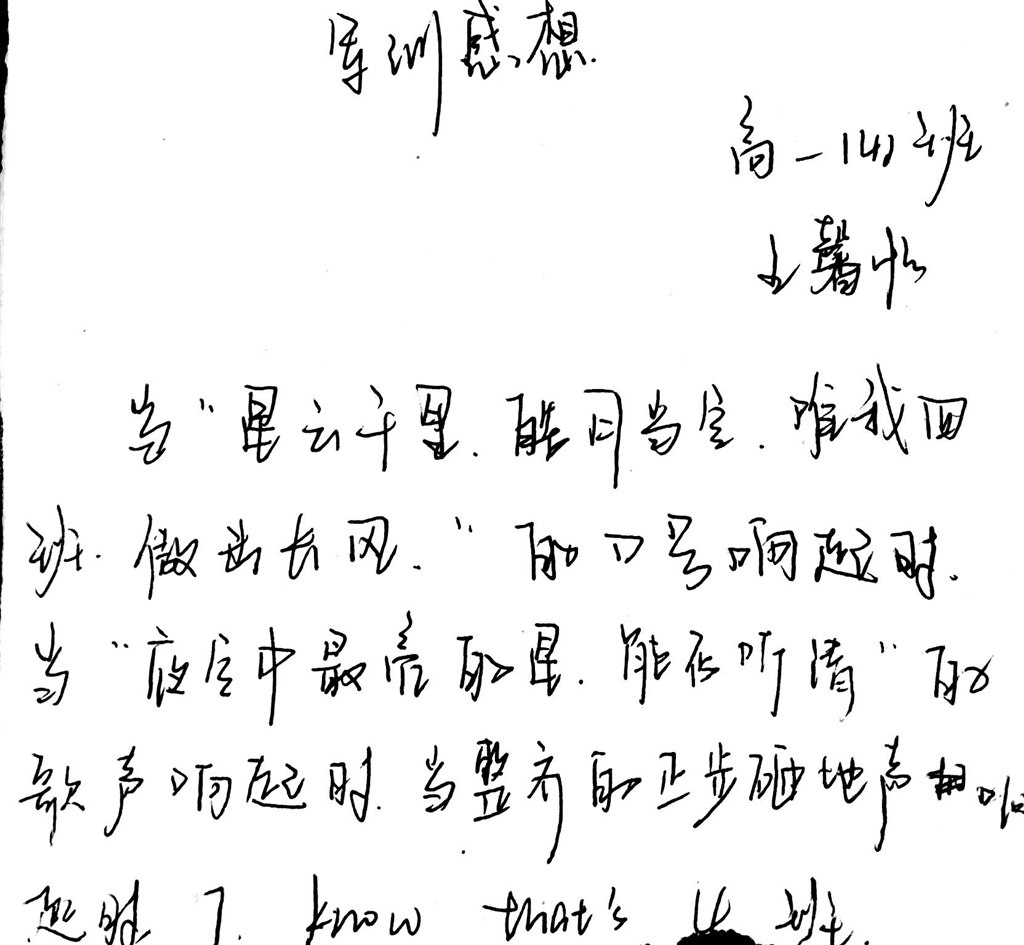 军训感想.
高一141班
王馨怡
当“星云千里.皓月当空.唯我四
班.傲世长风.”的口号响起时.
当“夜空中最亮的星.能否听清”的
歌声响起时.当整齐的正步砸地声响
起时 I know that's 4 班.